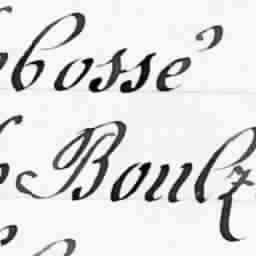 bossé
Boulz